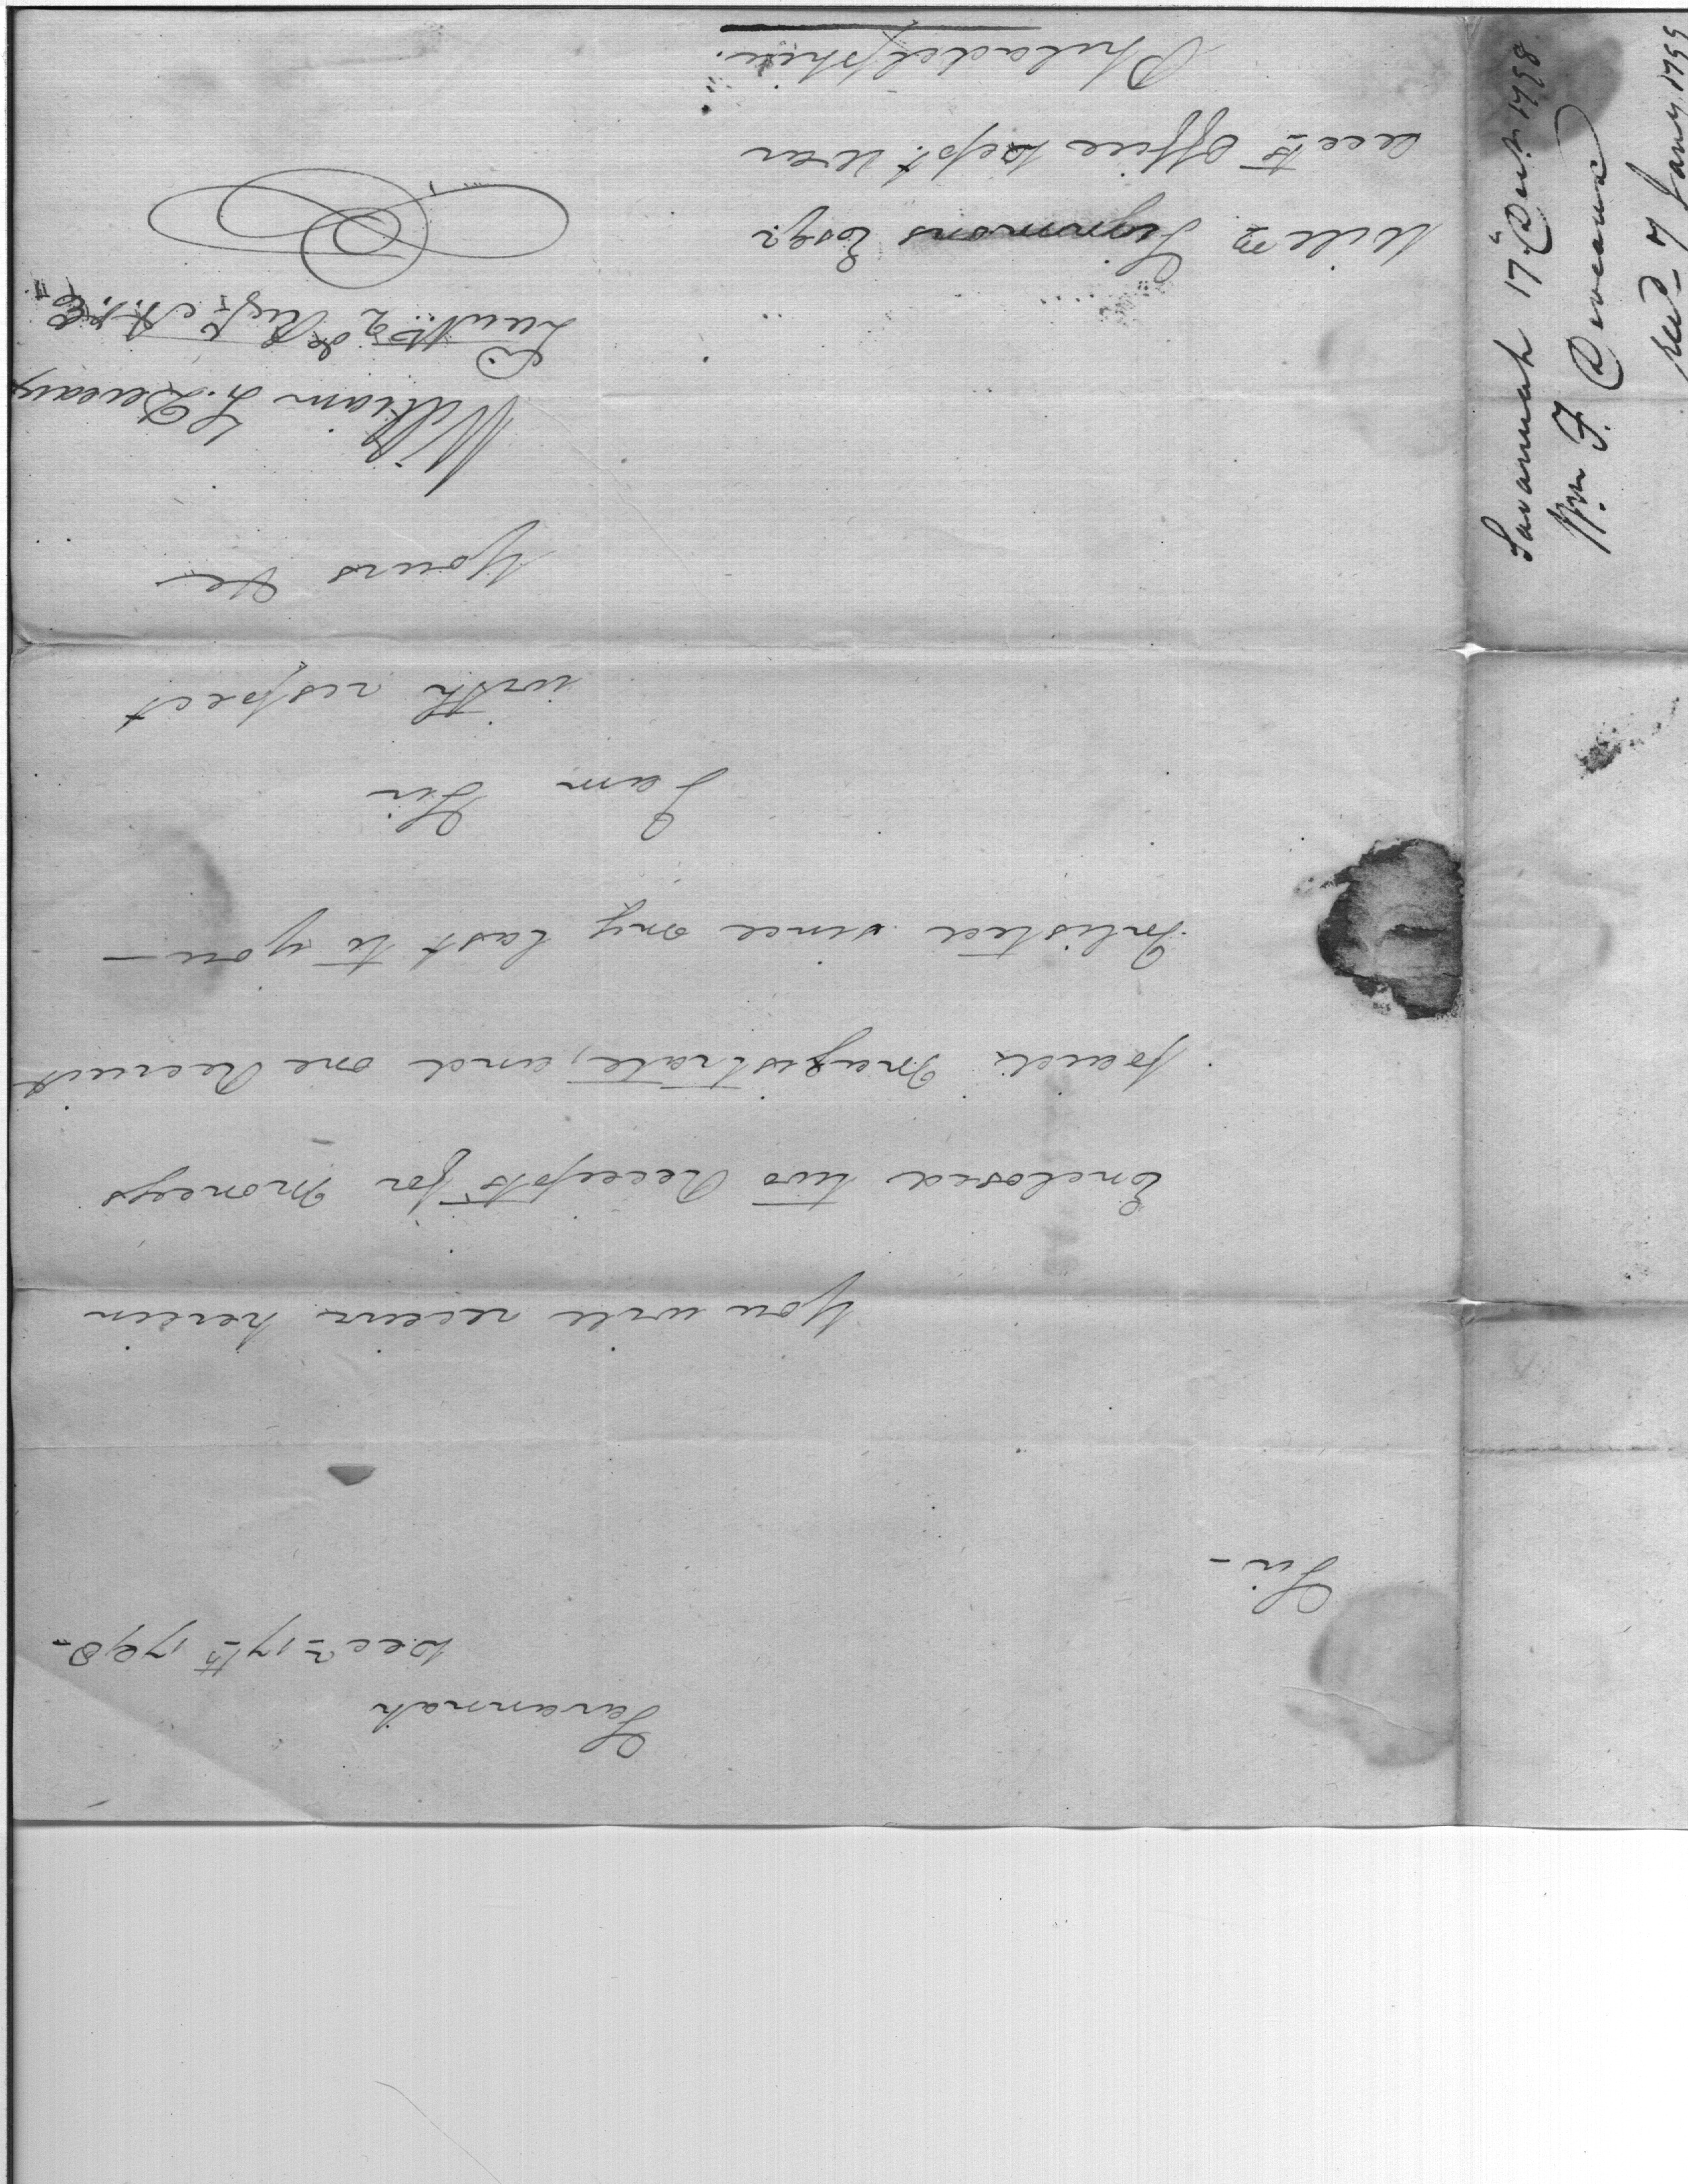 Savannah
Decr 17th 1798-
Sir-
You will receive herein
Enclosed two Receipts for Moneys
paid Magistrate, and one Recruit
Inlisted since my last to you-
I am Sir
with respect
Yours &c
William F. Deveaux
Lieutt 2d Regt A. & E.
Willm Simmons Esqr
Acctts Office Dept. War
Philadelphia.
Savannah 17 Decr 1798
Wm F. Deveaux
recd 7 Jany 1799